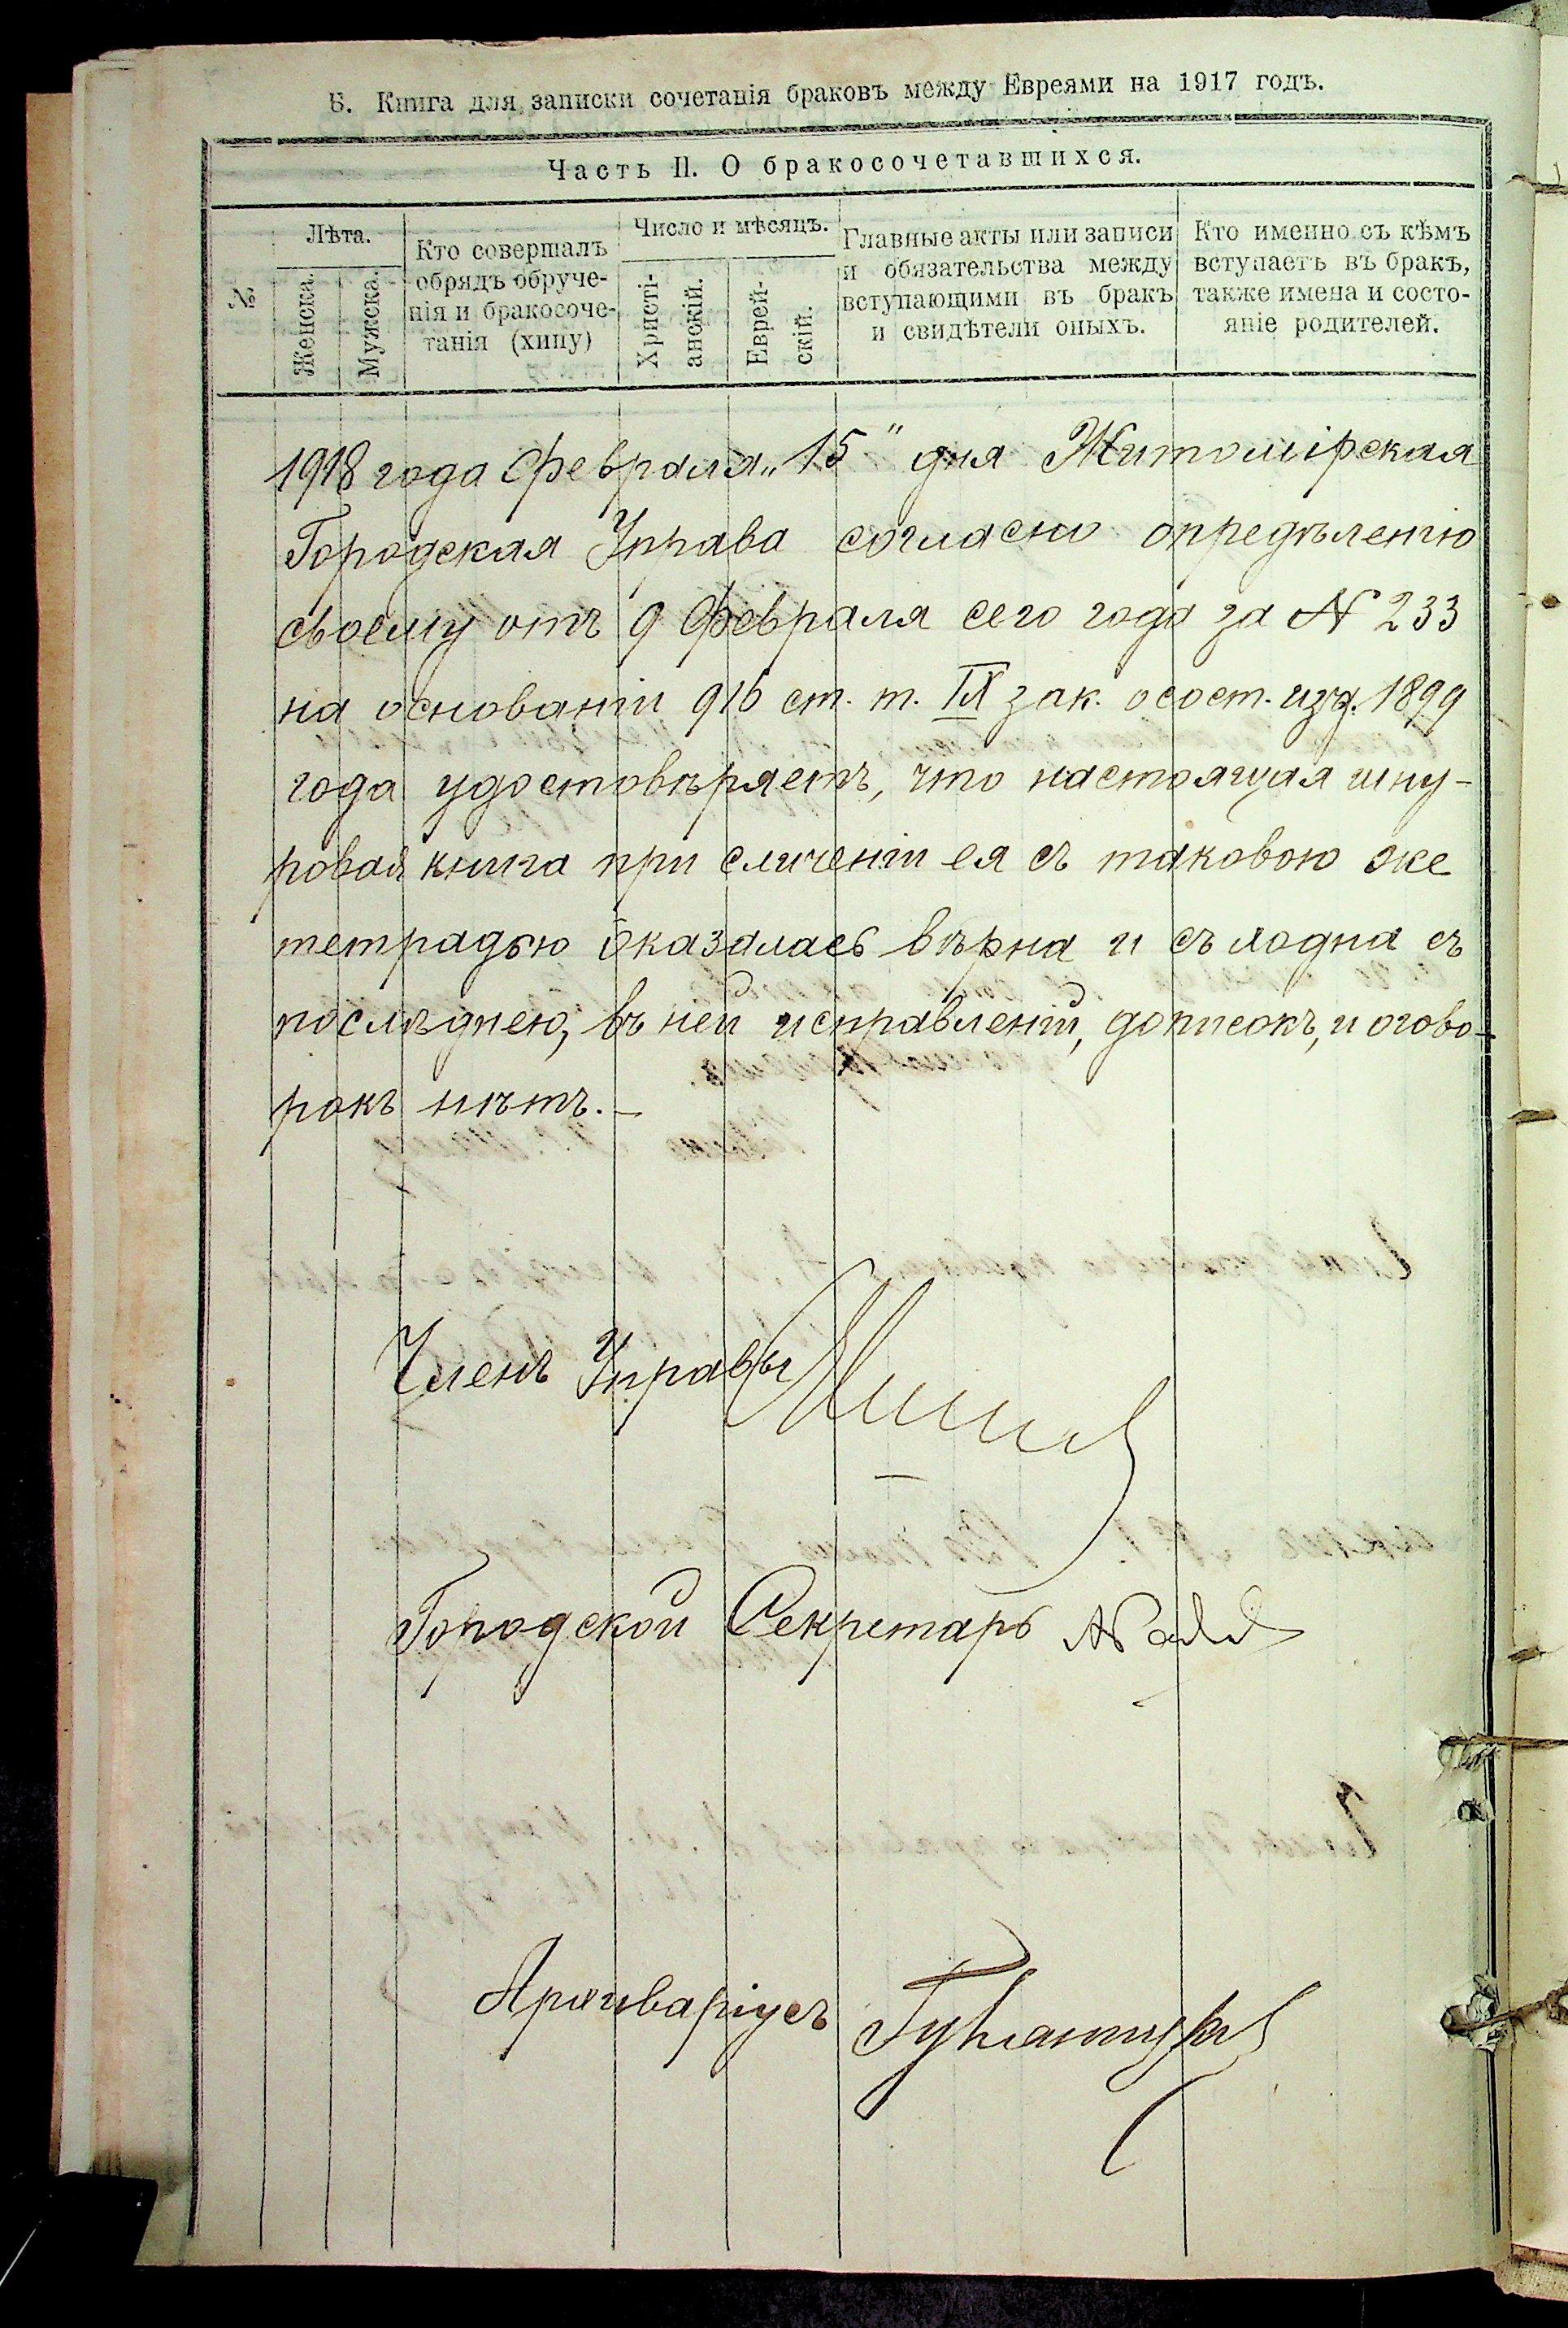 Б. Книга для записки сочетанія браковъ между Евреями на 1917 годъ.
Часть II. О бракосочетавшихся.
№
Лѣта.
Женска.
Мужска.
Кто совершалъ
обрядъ обруче-
нія и бракосоче-
танія (хипу)
Число и мѣсяцъ.
Христі-
анскій.
Еврей-
скій.
Главные акты или записи
и обязательства между
вступающими въ бракъ
и свидѣтели оныхъ.
Кто именно съ кѣмъ
вступаетъ въ бракъ,
также имена и состо-
яніе родителей.
1918 года Февраля „15" дня Житомірская
Городская Управа согласно опредѣленію
своему отъ 9 Февраля сего года за N 233
на основаніи 916 ст. т. IX зак. о сост. изд. 1899
года удостовѣряетъ, что настоящая шну-
ровая книга при сличеніи ея съ таковою же
тетрадью оказалась вѣрна и съ ходна съ
послѣднею, въ ней исправленій, дописокъ, и огово-
рокъ нѣтъ. —
Членъ Управы
Городской Секретарь
Архиваріусъ